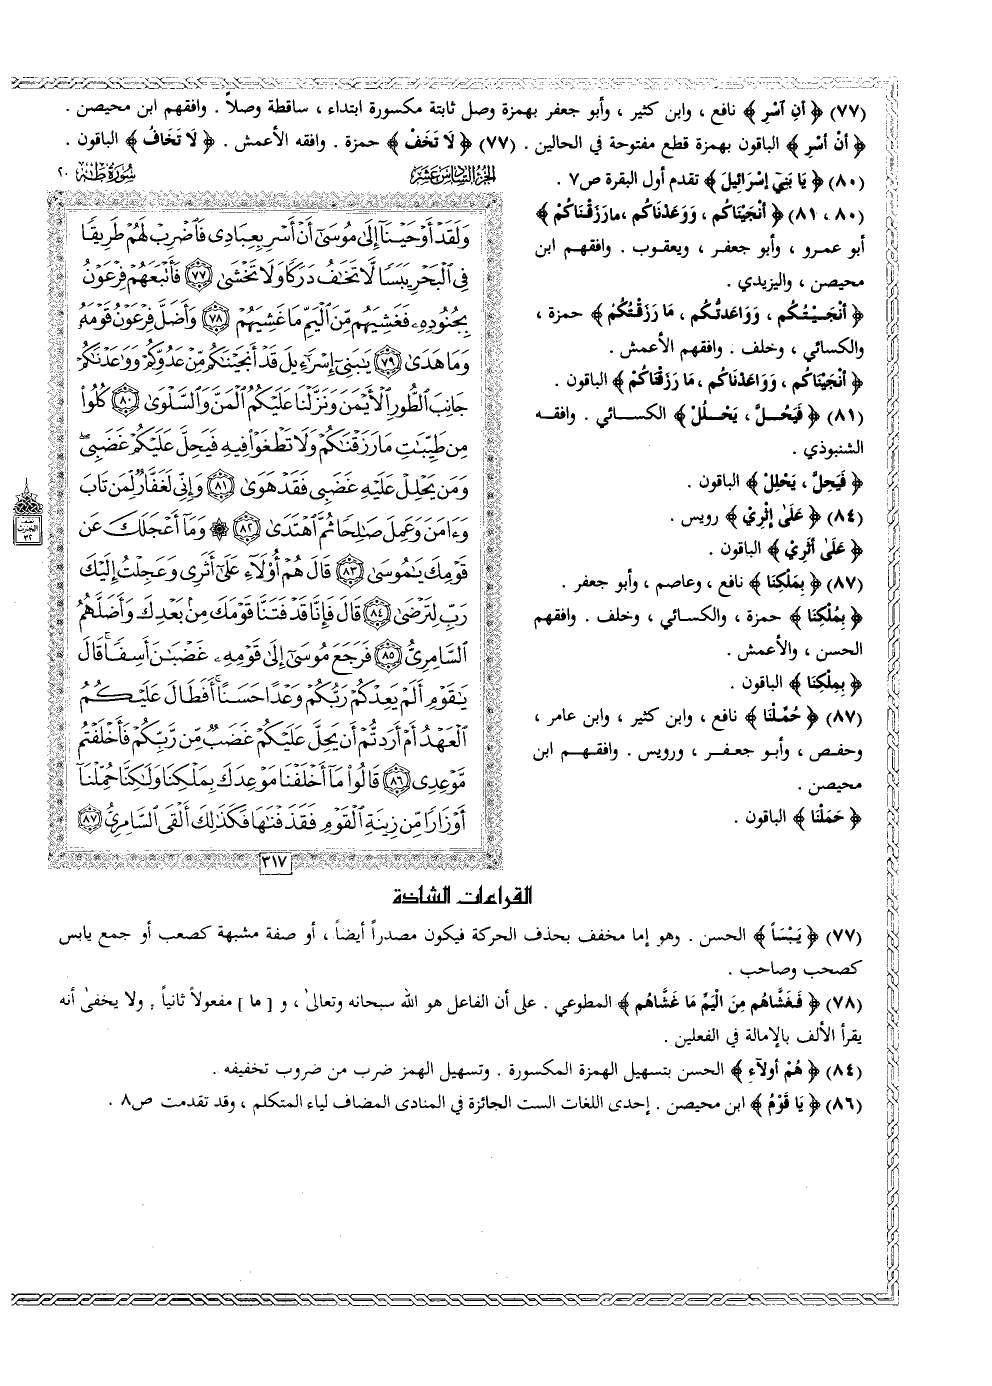 (٧٧) ﴿ أنِ آسْرِ ﴾ نافع ، وابن كثير ، وأبو جعفر بهمزة وصل ثابتة مكسورة ابتداء ، ساقطة وصلاً . وافقهم ابن محيصن .
﴿ أنْ أسْرِ ﴾ الباقون بهمزة قطع مفتوحة في الحالين . (٧٧) ﴿ لَا تَخَفْ ﴾ حمزة . وافقه الأعمش . ﴿ لَا تَخَافُ ﴾ الباقون .
(٨٠) ﴿ يَا بَنِي إسْرَائِيلَ ﴾ تقدم أول البقرة ص٧ .
(٨٠ ، ٨١) ﴿ أنْجَيْنَاكُم ، وَوَعَدْنَاكُم ،مارَزَقْنَاكُمْ ﴾
أبو عمرو ، وأبو جعفر ، ويعقوب . وافقهم ابن
محيصن ، واليزيدي .
﴿ أنْجَيْتُكُم ، وَوَاعَدتُّكُم ، مَا رَزَقْتُكُمْ ﴾ حمزة ،
والكسائي ، وخلف . وافقهم الأعمش .
﴿ أنْجَيْنَاكُم ، وَوَاعَدْنَاكُم ، مَا رَزَقْنَاكُمْ ﴾ الباقون .
(٨١) ﴿ فَيَحُلَّ ، يَحْلُلْ ﴾ الكسائي . وافقه
الشنبوذي .
﴿ فَيَحِلَّ ، يَحْلِلْ ﴾ الباقون .
(٨٤) ﴿ عَلَىٰ إثْرِيْ ﴾ رويس .
﴿ عَلَىٰ أثَرِيْ ﴾ الباقون .
(٨٧) ﴿ بِمَلْكِنَا ﴾ نافع ، وعاصم ، وأبو جعفر .
﴿ بِمُلْكِنَا ﴾ حمزة ، والكسائي ، وخلف . وافقهم
الحسن ، والأعمش .
﴿ بِمِلْكِنَا ﴾ الباقون .
(٨٧) ﴿ حُمِّلْنَا ﴾ نافع ، وابن كثير ، وابن عامر ،
وحفص ، وأبو جعفر ، ورويس . وافقهم ابن
محيصن .
﴿ حَمَلْنَا ﴾ الباقون .
الجزء السادس عشر
سورة طه ٢٠
وَلَقَدْ أَوْحَيْنَآ إِلَىٰ مُوسَىٰٓ أَنْ أَسْرِ بِعِبَادِى فَٱضْرِبْ لَهُمْ طَرِيقًا
فِى ٱلْبَحْرِ يَبَسًا لَّا تَخَٰفُ دَرَكًا وَلَا تَخْشَىٰ ٧٧ فَأَتْبَعَهُمْ فِرْعَوْنُ
بِجُنُودِهِۦ فَغَشِيَهُم مِّنَ ٱلْيَمِّ مَا غَشِيَهُمْ ٧٨ وَأَضَلَّ فِرْعَوْنُ قَوْمَهُۥ
وَمَا هَدَىٰ ٧٩ يَٰبَنِىٓ إِسْرَٰٓءِيلَ قَدْ أَنجَيْنَٰكُم مِّنْ عَدُوِّكُمْ وَوَٰعَدْنَٰكُمْ
جَانِبَ ٱلطُّورِ ٱلْأَيْمَنَ وَنَزَّلْنَا عَلَيْكُمُ ٱلْمَنَّ وَٱلسَّلْوَىٰ ٨٠ كُلُوا۟
مِن طَيِّبَٰتِ مَا رَزَقْنَٰكُمْ وَلَا تَطْغَوْا۟ فِيهِ فَيَحِلَّ عَلَيْكُمْ غَضَبِى
وَمَن يَحْلِلْ عَلَيْهِ غَضَبِى فَقَدْ هَوَىٰ ٨١ وَإِنِّى لَغَفَّارٌ لِّمَن تَابَ
وَءَامَنَ وَعَمِلَ صَٰلِحًا ثُمَّ ٱهْتَدَىٰ ٨٢ ۞ وَمَآ أَعْجَلَكَ عَن
قَوْمِكَ يَٰمُوسَىٰ ٨٣ قَالَ هُمْ أُو۟لَآءِ عَلَىٰٓ أَثَرِى وَعَجِلْتُ إِلَيْكَ
رَبِّ لِتَرْضَىٰ ٨٤ قَالَ فَإِنَّا قَدْ فَتَنَّا قَوْمَكَ مِنۢ بَعْدِكَ وَأَضَلَّهُمُ
ٱلسَّامِرِىُّ ٨٥ فَرَجَعَ مُوسَىٰٓ إِلَىٰ قَوْمِهِۦ غَضْبَٰنَ أَسِفًا ۚ قَالَ
يَٰقَوْمِ أَلَمْ يَعِدْكُمْ رَبُّكُمْ وَعْدًا حَسَنًا ۚ أَفَطَالَ عَلَيْكُمُ
ٱلْعَهْدُ أَمْ أَرَدتُّمْ أَن يَحِلَّ عَلَيْكُمْ غَضَبٌ مِّن رَّبِّكُمْ فَأَخْلَفْتُم
مَّوْعِدِى ٨٦ قَالُوا۟ مَآ أَخْلَفْنَا مَوْعِدَكَ بِمَلْكِنَا وَلَٰكِنَّا حُمِّلْنَآ
أَوْزَارًا مِّن زِينَةِ ٱلْقَوْمِ فَقَذَفْنَٰهَا فَكَذَٰلِكَ أَلْقَى ٱلسَّامِرِىُّ ٨٧
٣١٧
القراءات الشاذة
(٧٧) ﴿ يَبْسَاً ﴾ الحسن . وهو إما مخفف بحذف الحركة فيكون مصدراً أيضاً ، أو صفة مشبهة كصعب أو جمع يابس
كصحب وصاحب .
(٧٨) ﴿ فَغَشَّاهُم مِنَ الْيَمِّ مَا غَشَّاهُم ﴾ المطوعي . على أن الفاعل هو الله سبحانه وتعالىٰ ، و [ ما ] مفعولاً ثانياً . ولا يخفىٰ أنه
يقرأ الألف بالإمالة في الفعلين .
(٨٤) ﴿ هُمْ أولآءِ ﴾ الحسن بتسهيل الهمزة المكسورة . وتسهيل الهمز ضرب من ضروب تخفيفه .
(٨٦) ﴿ يَا قَوْمُ ﴾ ابن محيصن . إحدى اللغات الست الجائزة في المنادى المضاف لياء المتكلم ، وقد تقدمت ص٨ .